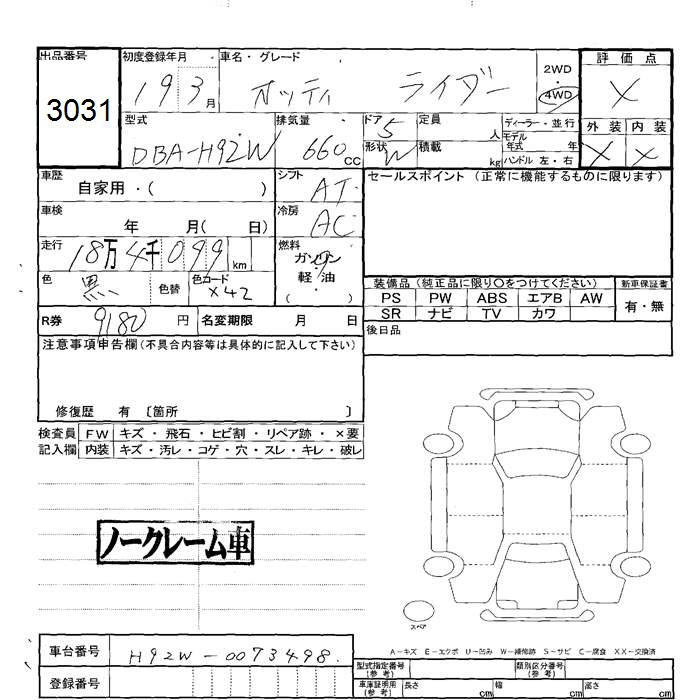 出品番号 初度登録年月 車名・グレード 2WD・4WD 評価点
3031 19 3月 オッティ ライダー X
型式 排気量 ドア 定員 ディーラー・並行 外装 内装
DBA-H92W 660cc 5 人 モデル年式 年 X X
形状 W 積載 kg ハンドル 左・右
車歴 自家用・( ) シフト AT セールスポイント (正常に機能するものに限ります)
車検 年 月( 日) 冷房 AC
走行 18万4千099km 燃料 ガソリン 軽・油 ( ・ )
色 黒 色替 色コード X42
装備品 (純正品に限り○をつけてください) 新車保証書
PS PW ABS エアB AW 有・無
SR ナビ TV カワ
R券 9180円 名変期限 月 日 後日品
注意事項申告欄(不具合内容等は具体的に記入して下さい)
修復歴 有 〔箇所 〕
検査員 FW キズ・飛石・ヒビ割・リペア跡・×要
記入欄 内装 キズ・汚レ・コゲ・穴・スレ・キレ・破レ
ノークレーム車
スペア
A-キズ E-エクボ U-凹み W-補修跡 S-サビ C-腐食 XX-交換済
車台番号 H92W-0073498
型式指定番号(参考) 類別区分番号(参考)
登録番号 車庫証明用(参考) 長さ cm 幅 cm 高さ cm